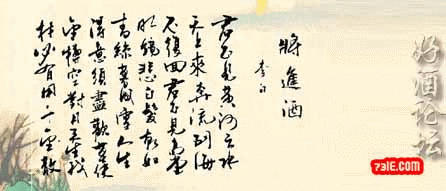 將進酒
李白
君不見黃河之水
天上來奔流到海
不復回君不見高堂
明鏡悲白髮朝如
青絲暮成雪人生
得意須盡歡莫使
金樽空對月天生我
材必有用千金散
好酒论坛
73IE.COM